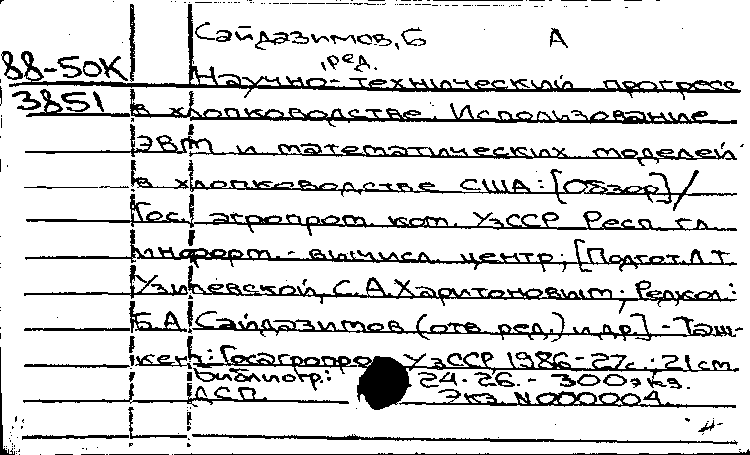 Сайдазимов, Б А
88-50К , ред.
Научно-технический прогресс
3851 в хлопководстве. Использование
ЭВМ и математических моделей
в хлопководстве США: [Обзор] /
Гос. агропром. ком. УзССР Респ. гл.
информ.-вычисл. центр; [Подгот. Л.Т.
Узилевской, С.А. Харитоновым; Редкол.:
Б.А. Сайдазимов (отв. ред.) и др.] - Таш-
кент: Госагропро УзССР, 1986-27с.; 21 см.
Библиогр.: 24-26. - 300экз.
ДСП. Экз. N000004.